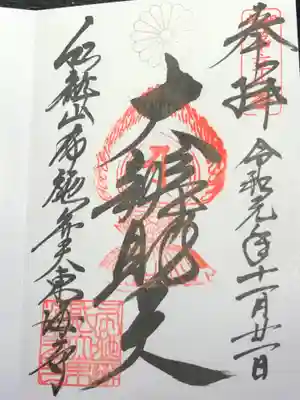 奉拝
令和元年十一月廿一日
大辨財天
紅龍山布施弁天東海寺